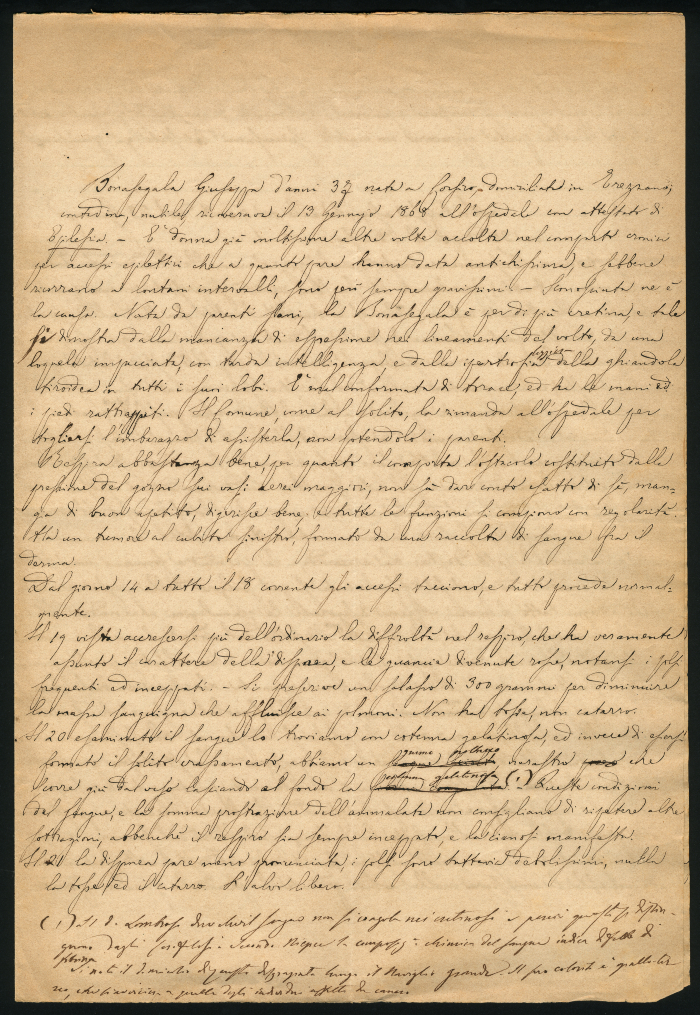 Bonasegala Giuseppa d'anni 32 nata a domiciliata in Trezzano,
contadina, nubile, ricoverava il 13 Gennajo 1868 all'ospedale con attestato di
Epilessia. – E' donna già moltissime altre volte accolta nel comparto cronici
per accessi epilettici che a quanto pare hanno data antichissima, e sebbene
ricorrano a lontani intervalli, sono però sempre gravissimi – Sconosciuta ne è
la causa. Nata da parenti sani, la Bonasegala è per di più cretina, e tale
si dimostra dalla mancanza di espressione nei lineamenti del volto, da una
loquela impacciata, con tarda intelligenza e dalla ipertrofia della ghiandola
tiroidea in tutti i suoi lobi. E' mal conformata di torace, ed ha le mani ed
i piedi rattrappiti. Il Comune, come al solito, la rimanda all'ospedale per
togliersi l'imbarazzo di assisterla, non potendolo i parenti.
Respira abbastanza bene, per quanto il comporta l'ostacolo costituito dalla
pressione del gozzo sui vasi aerei maggiori, non sa dar conto esatto di sè, man-
gia di buon apetito, digerisce bene, e tutte le funzioni si compiono con regolarità.
Ha un tumore al cubito sinistro, formato da una raccolta di sangue fra il
derma.
Dal giorno 14 a tutto il 18 corrente gli accessi tacciono, e tutto procede normal-
mente.
Il 19 vista accrescersi più dell'ordinario la difficoltà nel respiro, che ha veramente
assunto il carattere della dispnea, e le guancie divenute rosse, notansi i polsi
frequenti ed inceppati. – Si prescrive un salasso di 300 grammi per diminuire
la massa sanguigna che affluisce ai polmoni. Non ha tosse, non catarro.
Il 20 esaminato il sangue lo troviamo con cotenna gelatinosa, ed invece di essersi
formato il solito crassamento, abbiamo un nerastro che
corre giù dal vaso lasciando al fondo la gelatinosa (1). Queste condizioni
del sangue, e la somma prostrazione dell'ammalata non consigliano di ripetere altre
sottrazioni, abbenchè il respiro sia sempre inceppato, e la cianosi manifesta.
Il 21 la dispnea pare meno pronunciata, i polsi sono tuttavia debolissimi, nulla
la tosse ed il catarro. L'alvo libero.
(1) Il D. Lombroso il sangue non si coagula nei cretinosi e perciò questi si distin-
guono dagli Secondo Niepce la composiz. chimica del sangue indica di
fibrina
Si noti il di questa lungo il Naviglio grande. Il suo colorito è giallo-ter
reo, che si avvicina a quello degli individui affetti da cancro.